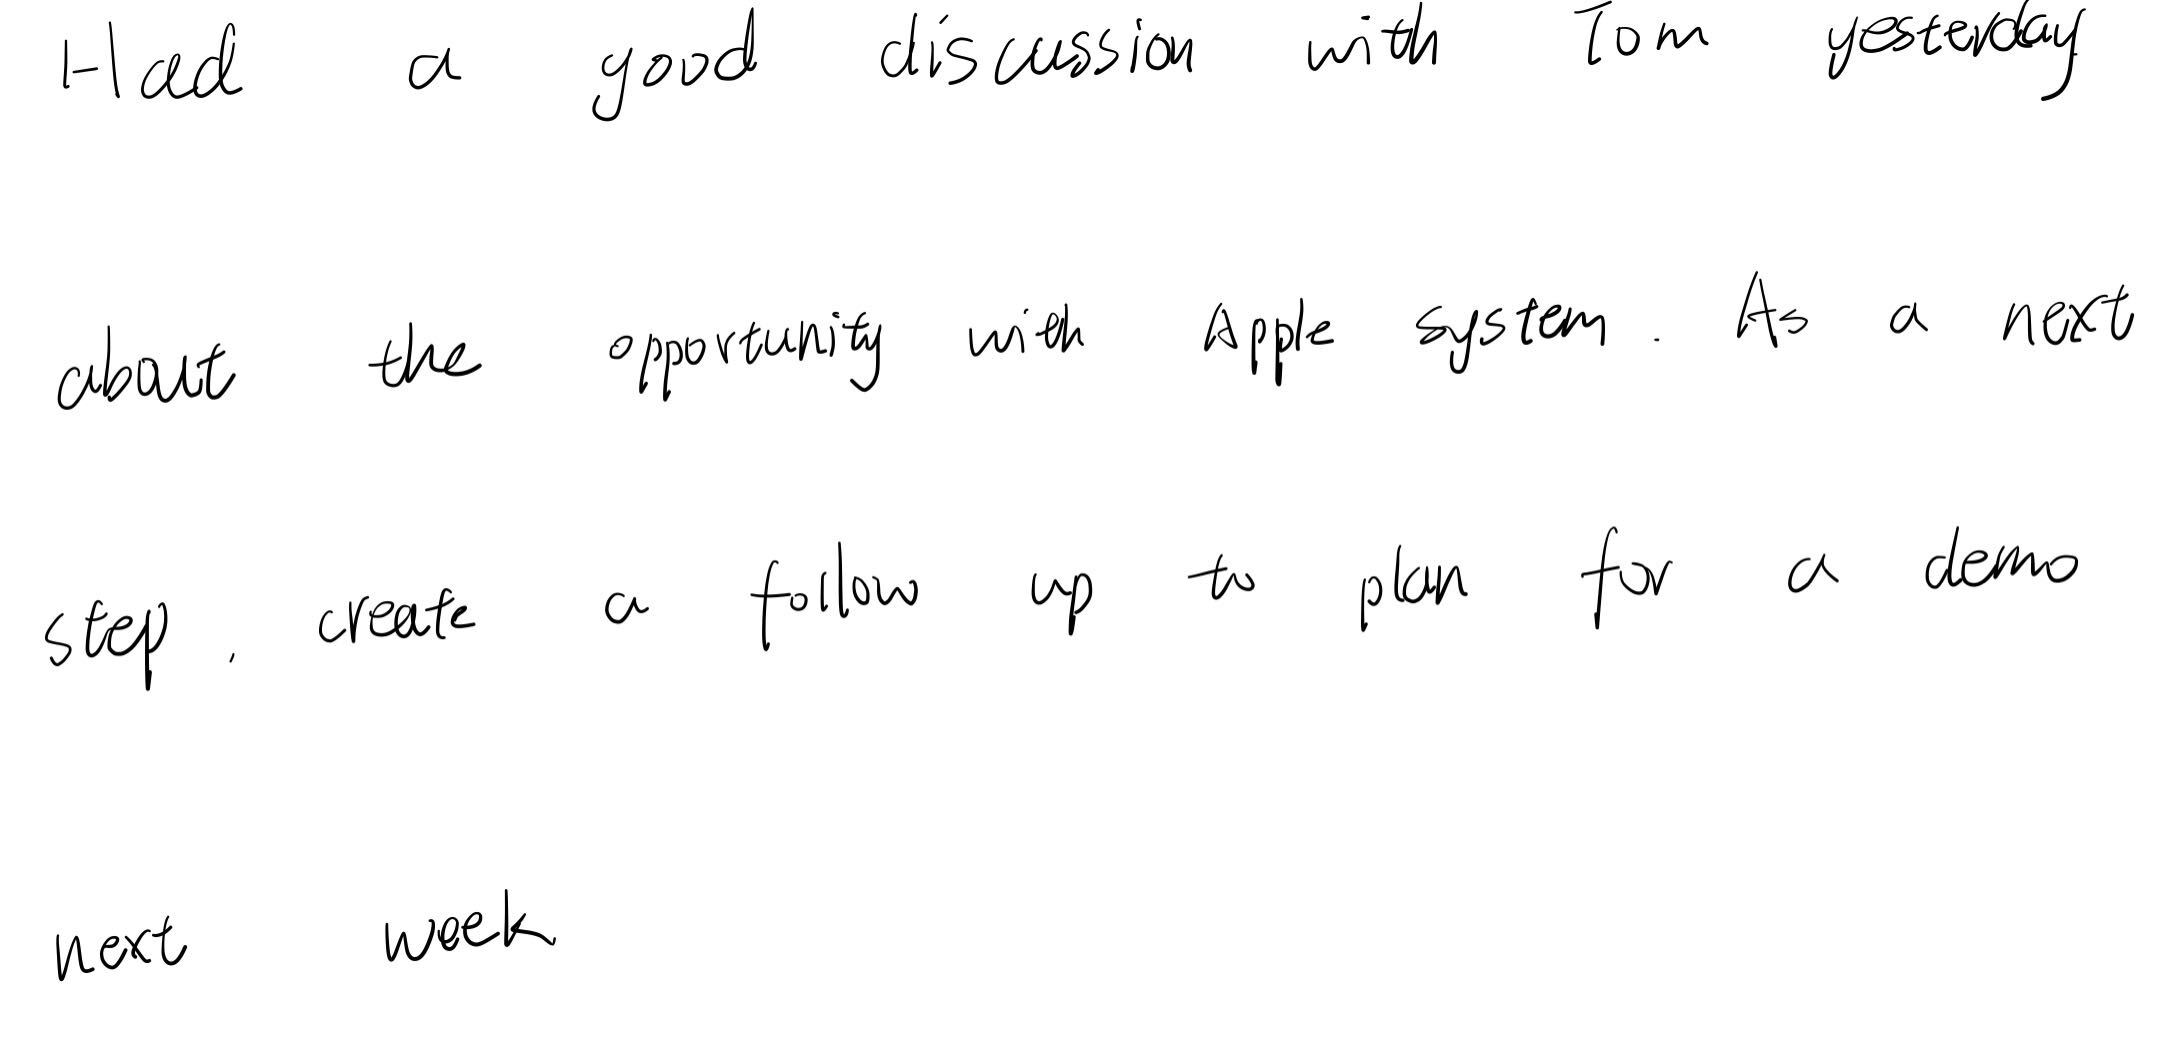 Had a good discussion with Tom yesterday
about the opportunity with Apple system. As a next
step, create a follow up to plan for a demo
next week